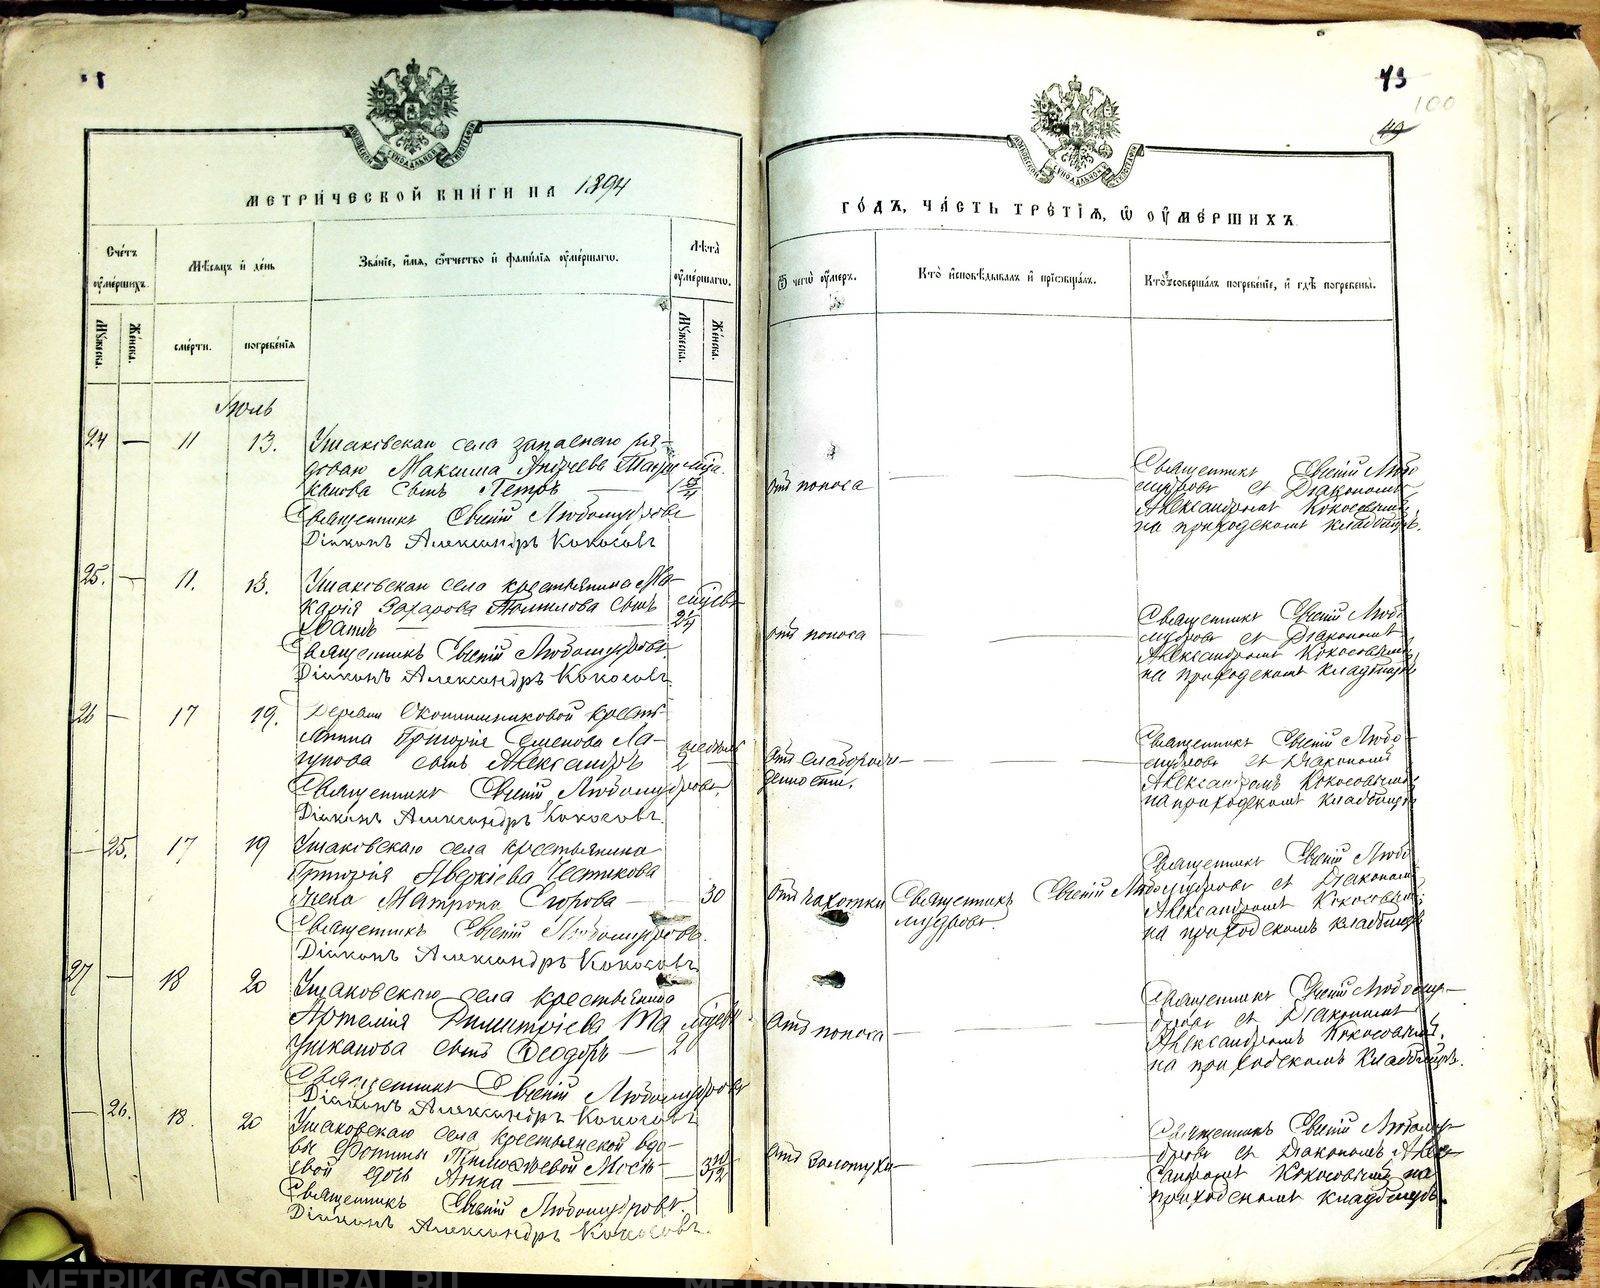 МЕТРИЧЕСКОЙ КНИГИ НА 1894
Счетъ умершихъ.
Мѣсяцъ и день
Званіе, имя, отчество и фамилія умершаго.
Лѣта умершаго.
Мужеска.
Женска.
смерти.
погребенія
Мужеска.
Женска.
Іюль
24 — 11 13. Ушаковскаго села запаснаго ря-
доваго Максима Андреева
сынъ Петръ
Священникъ Евгеній Любомудровъ
Діаконъ Александръ Кокосовъ
25. — 11. 13. Ушаковскаго села крестьянина Ма-
карія Захарова сынъ
Священникъ Евгеній Любомудровъ.
Діаконъ Александръ Кокосовъ.
26 — 17 19. Деревни кресть-
янина Григорія Семенова Ла-
гунова сынъ Александръ 2
Священникъ Евгеній Любомудровъ.
Діаконъ Александръ Кокосовъ.
— 25. 17 19 Ушаковскаго села крестьянина
Григорія Аверкіева Чистякова
жена Матрона Егорова — 30
Священникъ Евгеній Любомудровъ.
Діаконъ Александръ Кокосовъ.
27 — 18 20 Ушаковскаго села крестьянина
Артемія Димитріева Та
ушканова сынъ Ѳеодоръ — 2
Священникъ Евгеній Любомудровъ
Діаконъ Александръ Кокосовъ
— 26. 18. 20 Ушаковскаго села крестьянской вдо-
вы Фотины Тимоѳеевой
дочь Анна
Священникъ Евгеній Любомудровъ.
Діаконъ Александръ Кокосовъ.
73
100
49
ГОДЪ, ЧАСТЬ ТРЕТІЯ, Ѡ УМЕРШИХЪ
Ѿ чегѡ умеръ.
Кто исповѣдывалъ и пріобщалъ.
Кто совершалъ погребеніе, и гдѣ погребены.
отъ поноса
Священникъ Евгеній Любо
мудровъ съ Діакономъ
Александромъ Кокосовымъ,
на приходскомъ кладбищѣ.
отъ поноса
Священникъ Евгеній Любо
мудровъ съ Діакономъ
Александромъ Кокосовымъ,
на приходскомъ кладбищѣ
отъ слаборож-
денности.
Священникъ Евгеній Любо-
мудровъ съ Діакономъ
Александромъ Кокосовымъ
на приходскомъ кладбищѣ
отъ чахотки
Священникъ Евгеній Любо
мудровъ.
Священникъ Евгеній Любо
мудровъ съ Діакономъ
Александромъ Кокосовымъ
на приходскомъ кладбищѣ
отъ поноса
Священникъ Евгеній Любому-
дровъ съ Діакономъ
Александромъ Кокосовымъ,
на приходскомъ кладбищѣ.
отъ золотухи
Священникъ Евгеній Любому-
дровъ съ Діакономъ Алек-
сандромъ Кокосовымъ на
приходскомъ кладбищѣ.
METRIKI.GASO-URAL.RU